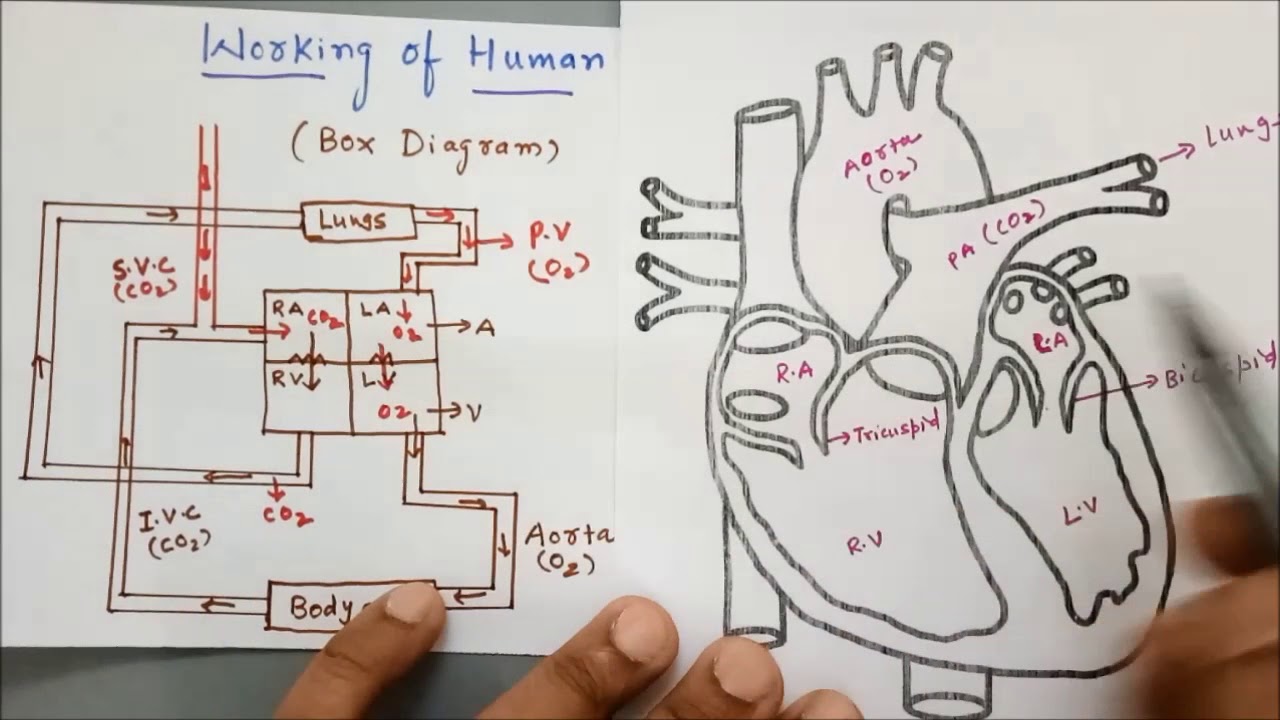 Working of Human
(Box Diagram)
Lungs
P.V
(O2)
S.V.C
(CO2)
RA CO2
LA
O2
A
RV
LV
O2
V
CO2
I.V.C
(CO2)
Aorta
(O2)
Body
Aorta
(O2)
Lung
PA (CO2)
R.A
L.A
Tricuspid
R.V
L.V